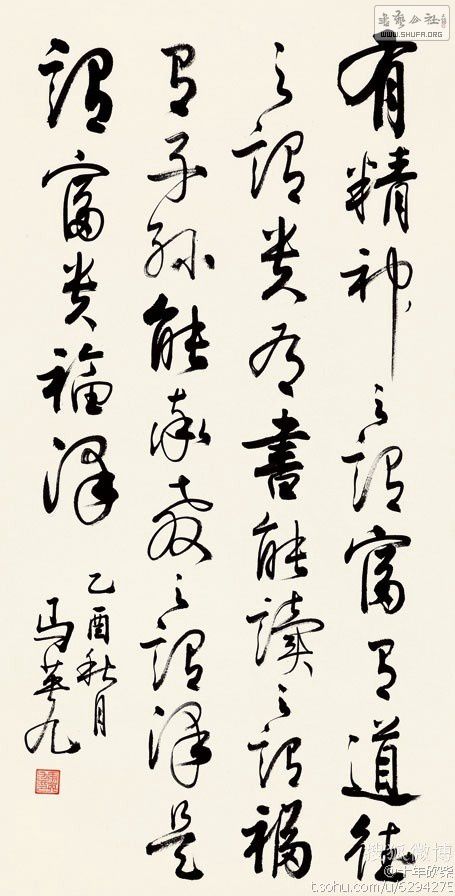 有精神之謂富有道德
之謂貴有書能讀之謂福
有子孫能承教之謂澤是
謂富貴福澤
乙酉秋月
馬英九
書藝公社
WWW.SHUFA.ORG
搜狐微博
@千年砍柴
t.sohu.com/u/6294275